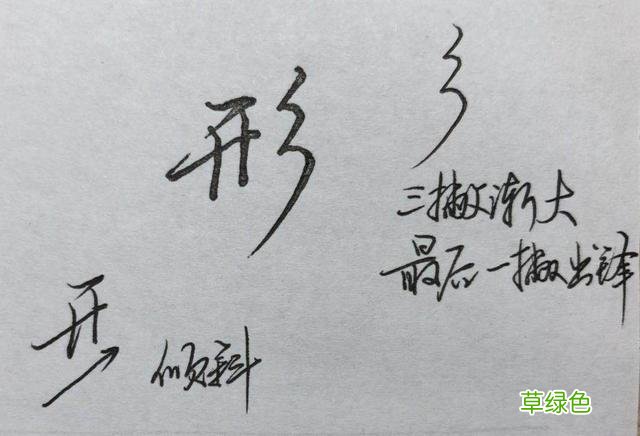 形
彡
三撇渐大
最后一撇出锋
开
倾斜
草绿色